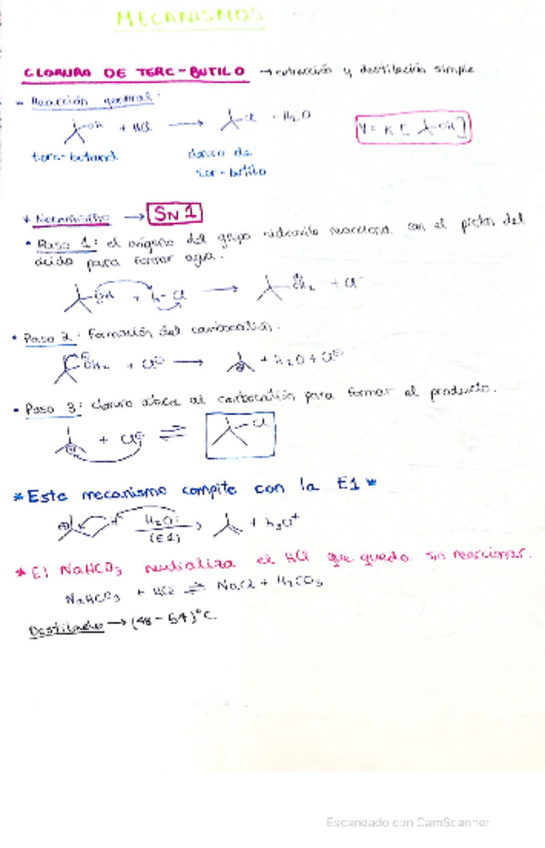 MECANISMOS
CLORURO DE TERC-BUTILO → extracción y destilación simple
* Reacción general:
OH + HCl → Cl + H2O
V = K [ OH ]
terc-butanol
cloruro de
ter-butilo
* Mecanismo → SN1
• Paso 1: el oxígeno del grupo hidroxilo reacciona con el protón del
ácido para formar agua.
OH + H-Cl → OH2 + Cl-
• Paso 2: Formación del carbocatión.
OH2 + Cl⊖ → ⊕ + H2O + Cl⊖
• Paso 3: cloruro ataca al carbocatión para formar el producto.
⊕ + Cl⊖ ⇌ Cl
*Este mecanismo compite con la E1*
H2O: → + H3O+
(E1)
*El NaHCO3 neutraliza el HCl que queda sin reaccionar.
NaHCO3 + HCl ⇌ NaCl + H2CO3
Destilado → (48-54)°C
Escaneado con CamScanner